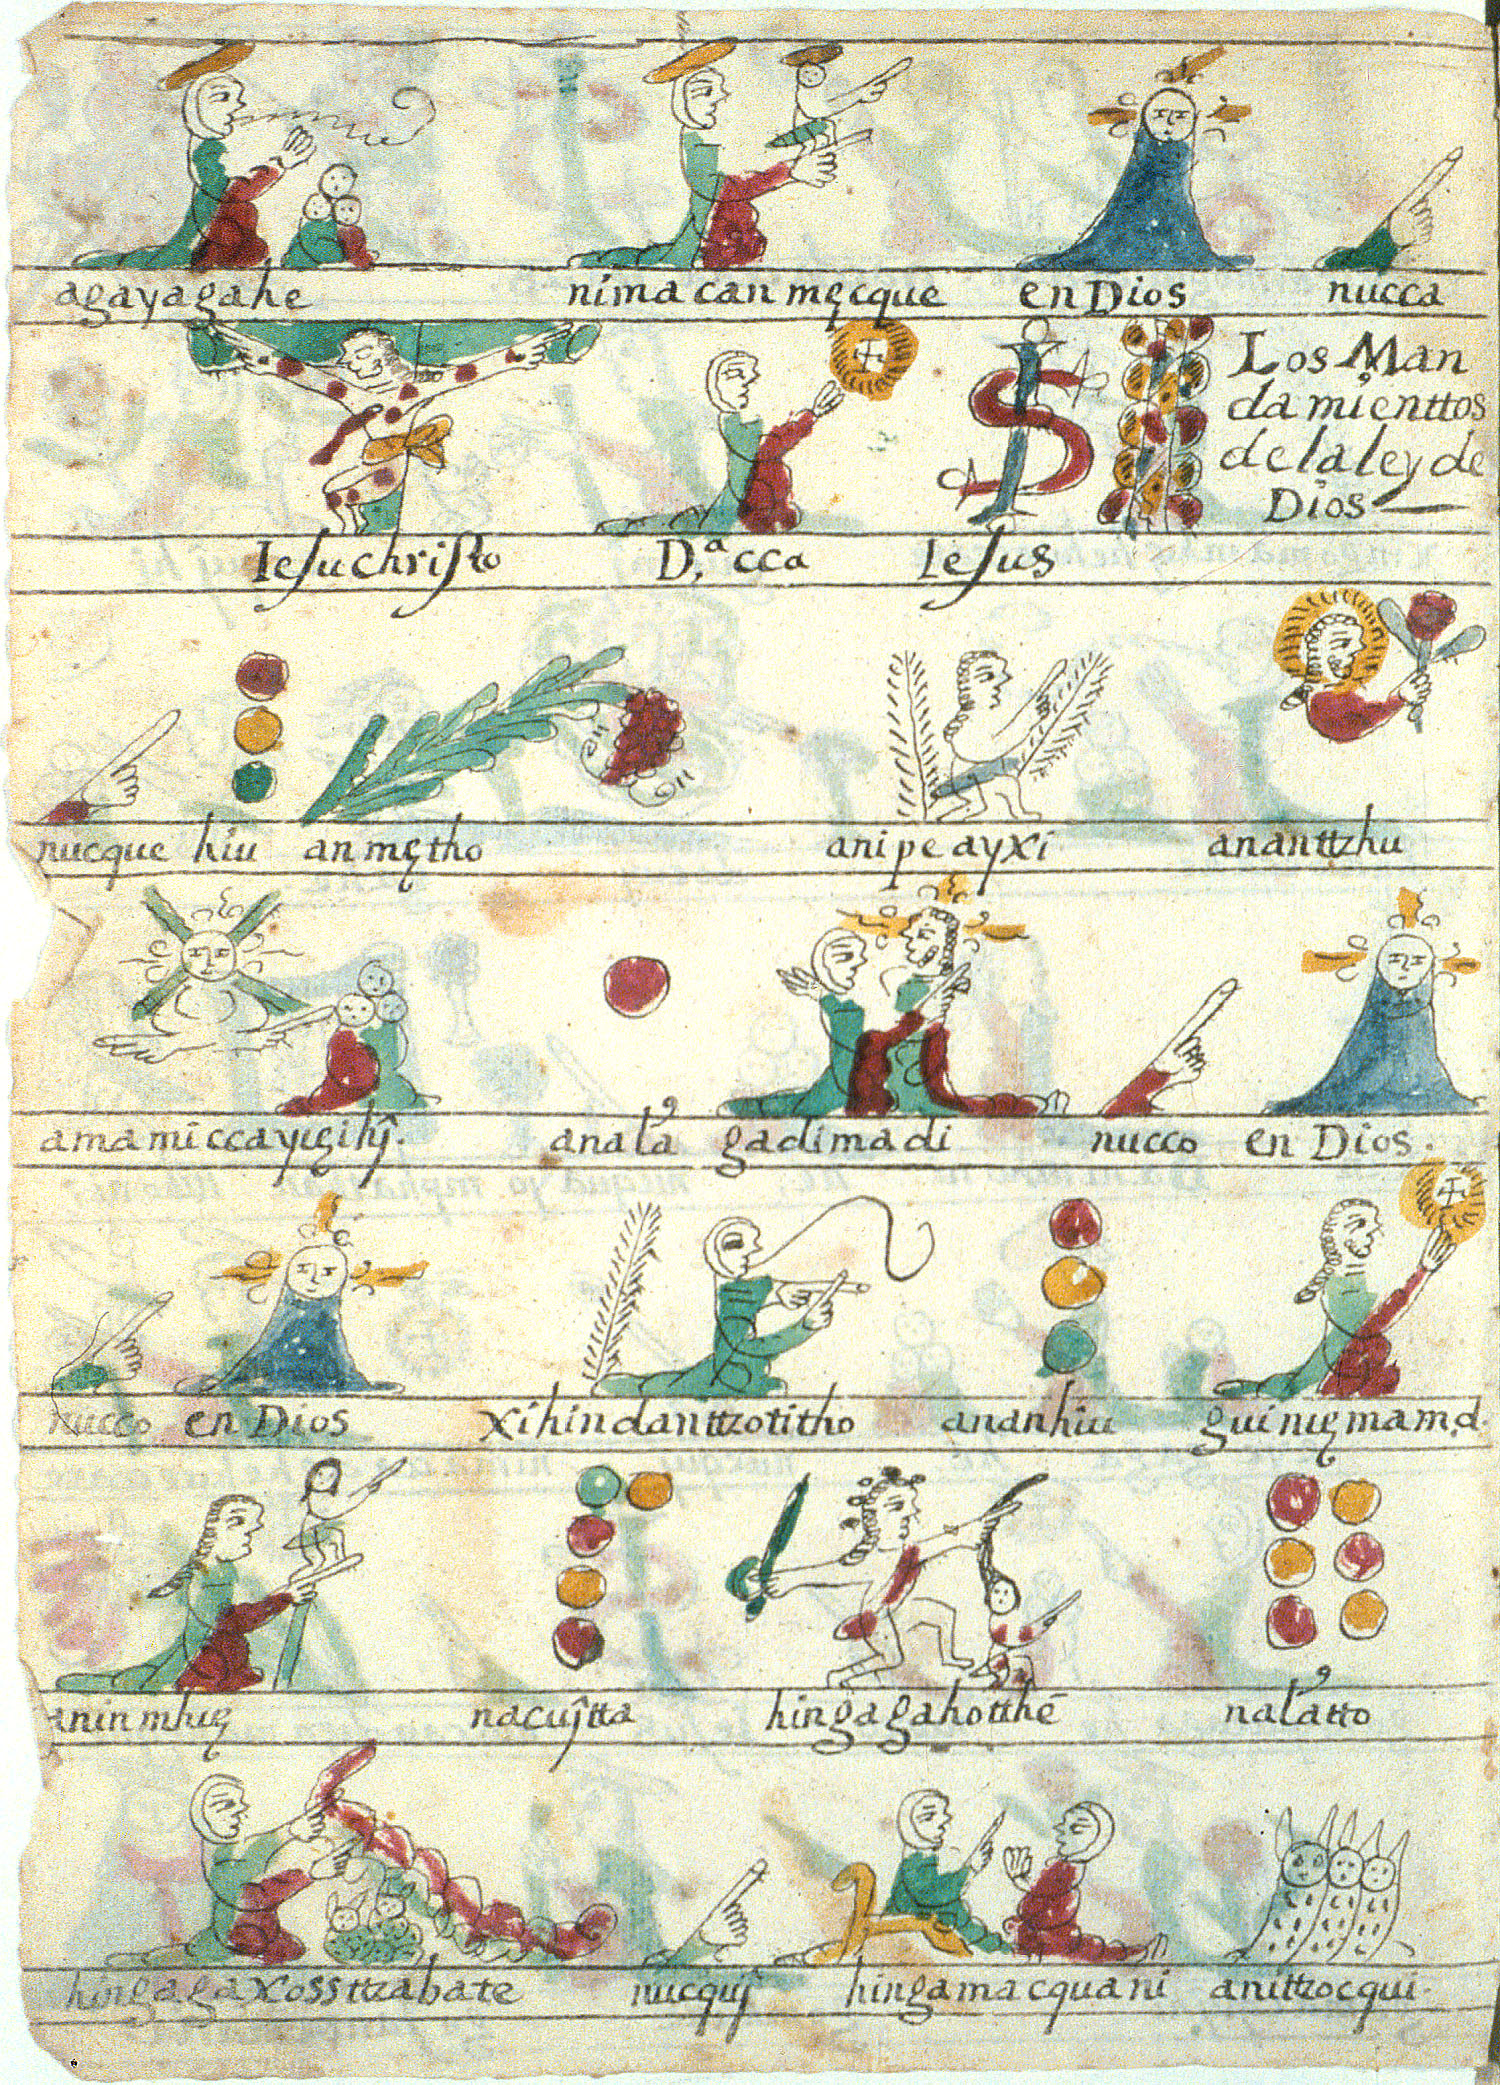 agayagahe nimacanmęcque en Dios nucca
Iesuchristo D.ª cca Iesus
Los Man
damienttos
de la ley de
Dios
nucque hiu anmętho anipe ayxi ananttzhu
amamiccayęgihŷ. anala gadimadi nucco en Dios.
nucco en Dios xihindanttzotitho ananhiu guinięmamd.
aninmhuę nacuŷtta hingagahotthē nalatto
hingagaxossttzabate nucquŷ hingamacquani anittzocqui.